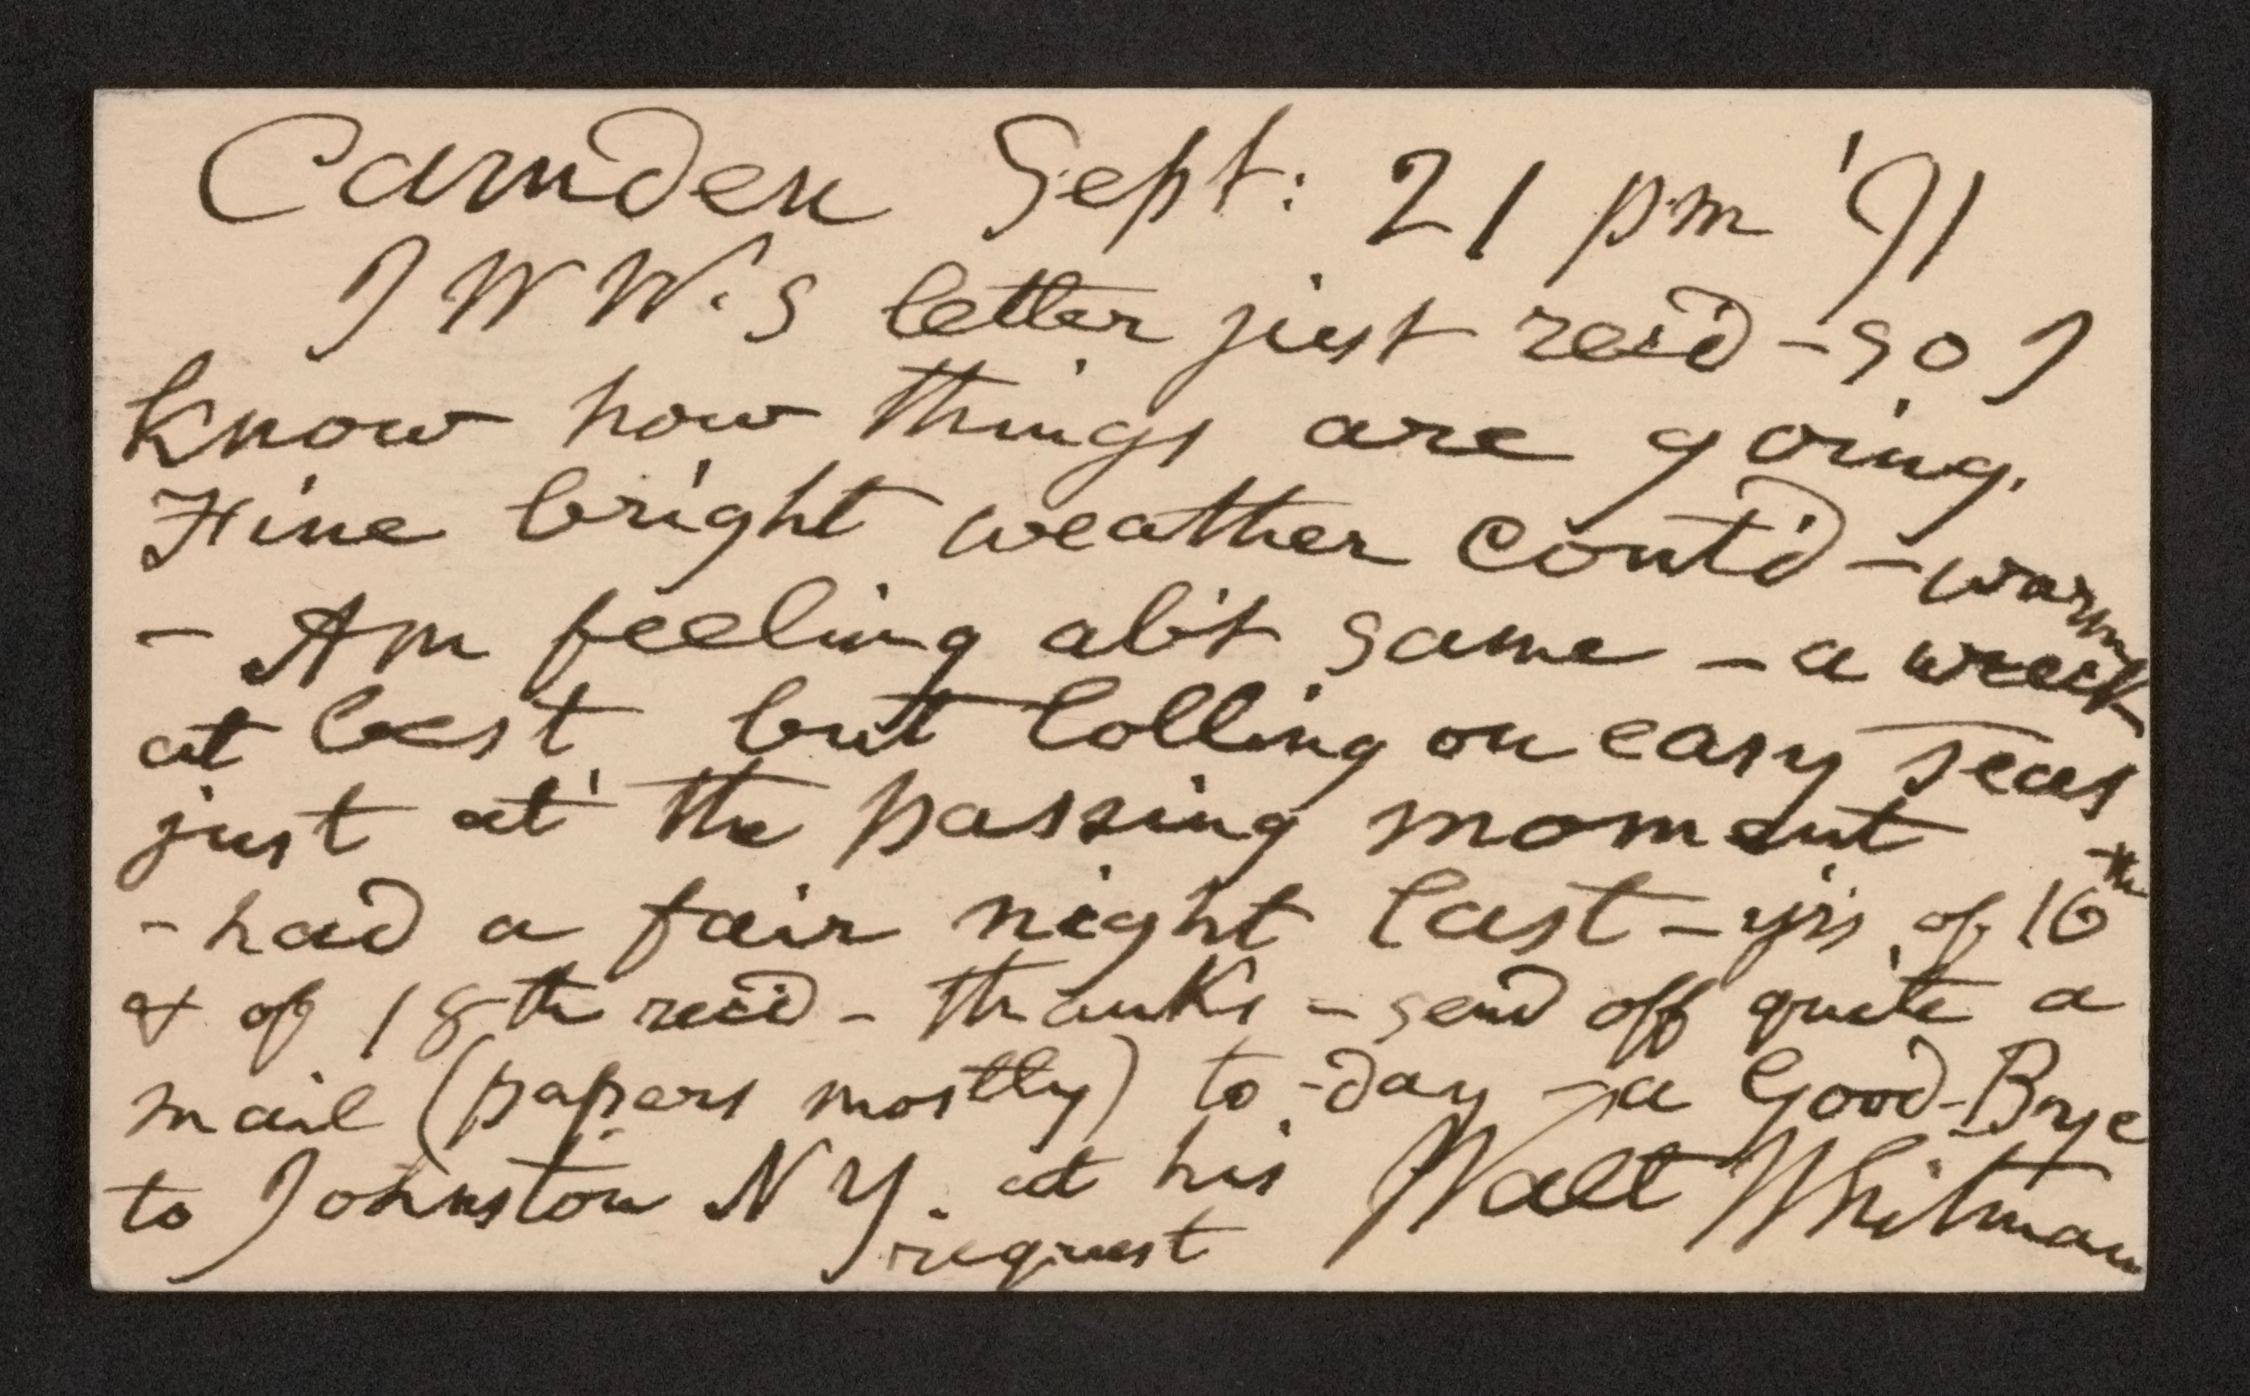 Camden Sept: 21 pm '91
J W W's letter just rec'd - so I
know how things are going.
Fine bright weather cont'd - warm
- Am feeling ab't same - a wreck
at best, but lolling on easy seas
just at the passing moment
- had a fair night last - y'rs of 16th
& of 18th rec'd - thanks - send off quite a
mail (papers mostly) to-day - a Good-Bye
to Johnston N Y. at his
request
Walt Whitman